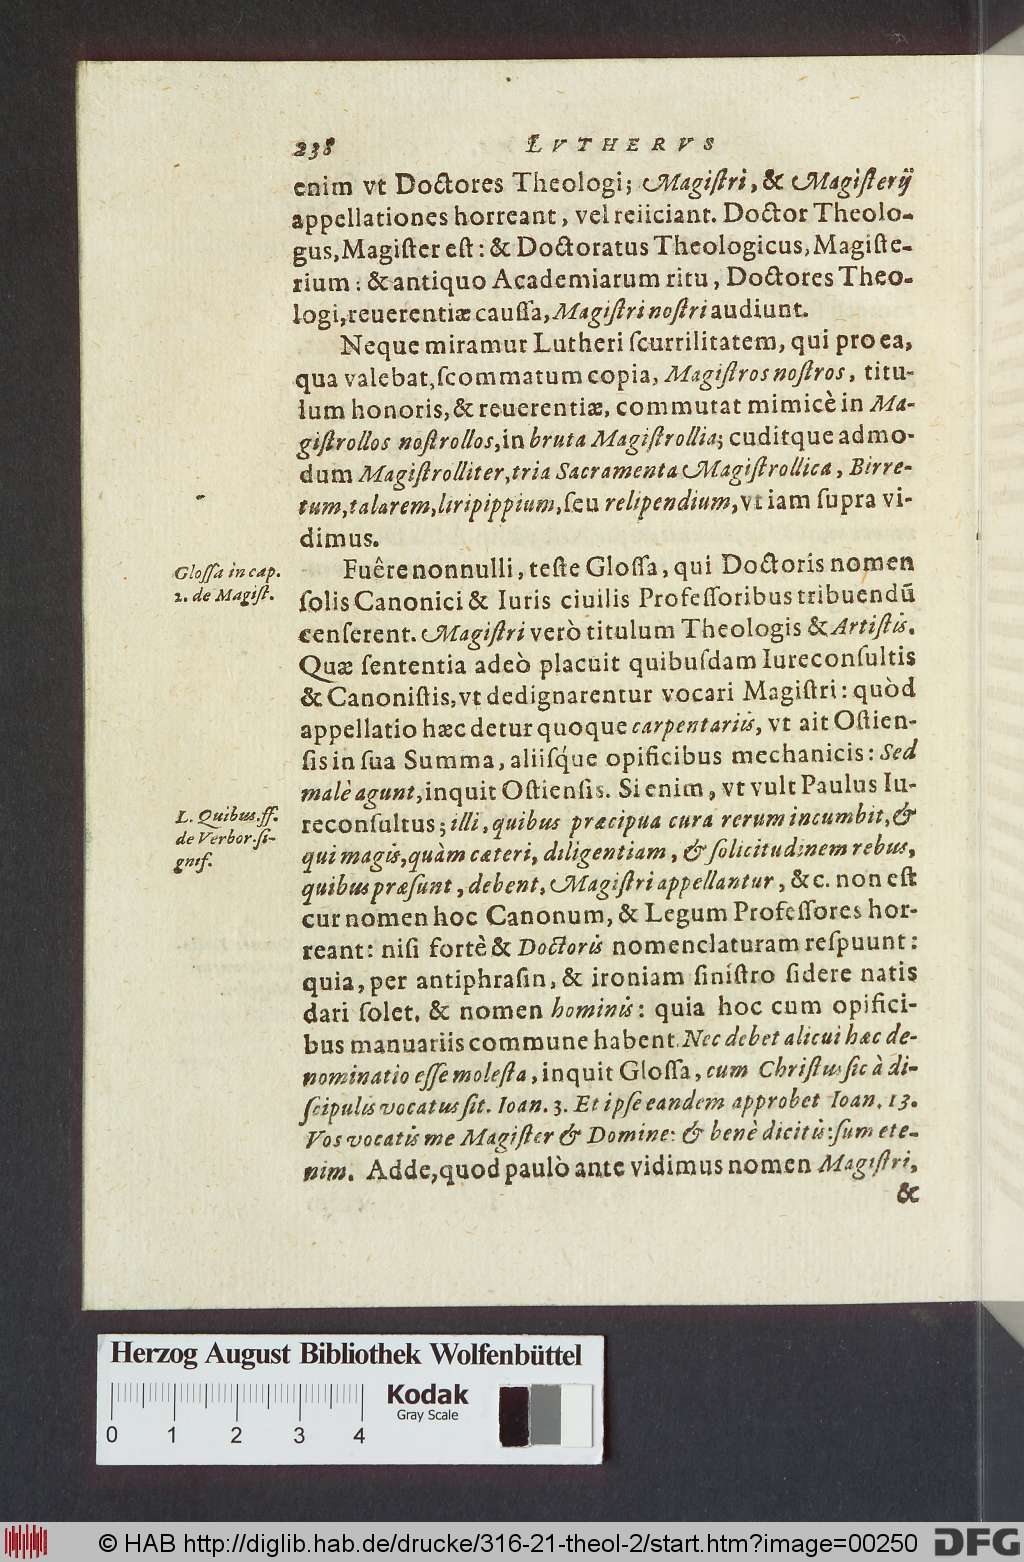 238 LVTHERVS
enim vt Doctores Theologi; Magiſtri, & Magiſterij
appellationes horreant, vel reiiciant. Doctor Theolo-
gus, Magiſter eſt: & Doctoratus Theologicus, Magiſte-
rium: & antiquo Academiarum ritu, Doctores Theo-
logi, reuerentiæ cauſſa, Magiſtri noſtri audiunt.
Neque miramur Lutheri ſcurrilitatem, qui pro ea,
qua valebat, ſcommatum copia, Magiſtros noſtros, titu-
lum honoris, & reuerentiæ, commutat mimicè in Ma-
giſtrollos noſtrollos, in bruta Magiſtrollia; cuditque admo-
dum Magiſtrolliter, tria Sacramenta Magiſtrollica, Birre-
tum, talarem, liripippium, ſeu relipendium, vt iam ſupra vi-
dimus.
Gloſſa in cap.
2. de Magiſt.
Fuêre nonnulli, teſte Gloſſa, qui Doctoris nomen
ſolis Canonici & Iuris ciuilis Profeſſoribus tribuendũ
cenſerent. Magiſtri verò titulum Theologis & Artiſtis.
Quæ ſententia adeò placuit quibuſdam Iureconſultis
& Canoniſtis, vt dedignarentur vocari Magiſtri: quòd
appellatio hæc detur quoque carpentariis, vt ait Oſtien-
ſis in ſua Summa, aliiſq́ue opificibus mechanicis: Sed
malè agunt, inquit Oſtienſis. Si enim, vt vult Paulus Iu-
L. Quibus. ff.
de Verbor. ſi-
gnif.
reconſultus; illi, quibus præcipua cura rerum incumbit, &
qui magis, quàm cæteri, diligentiam, & ſolicitudinem rebus,
quibus præſunt, debent, Magiſtri appellantur, &c. non eſt
cur nomen hoc Canonum, & Legum Profeſſores hor-
reant: niſi fortè & Doctoris nomenclaturam reſpuunt:
quia, per antiphraſin, & ironiam ſiniſtro ſidere natis
dari ſolet, & nomen hominis: quia hoc cum opifici-
bus manuariis commune habent. Nec debet alicui hæc de-
nominatio eſſe moleſta, inquit Gloſſa, cum Chriſtus ſic à di-
ſcipulis vocatus ſit. Ioan. 3. Et ipſe eandem approbet Ioan. 13.
Vos vocatis me Magiſter & Domine: & benè dicitis: ſum ete-
nim. Adde, quod paulò ante vidimus nomen Magiſtri,
&
Herzog August Bibliothek Wolfenbüttel
Kodak
Gray Scale
0 1 2 3 4
© HAB http://diglib.hab.de/drucke/316-21-theol-2/start.htm?image=00250
DFG